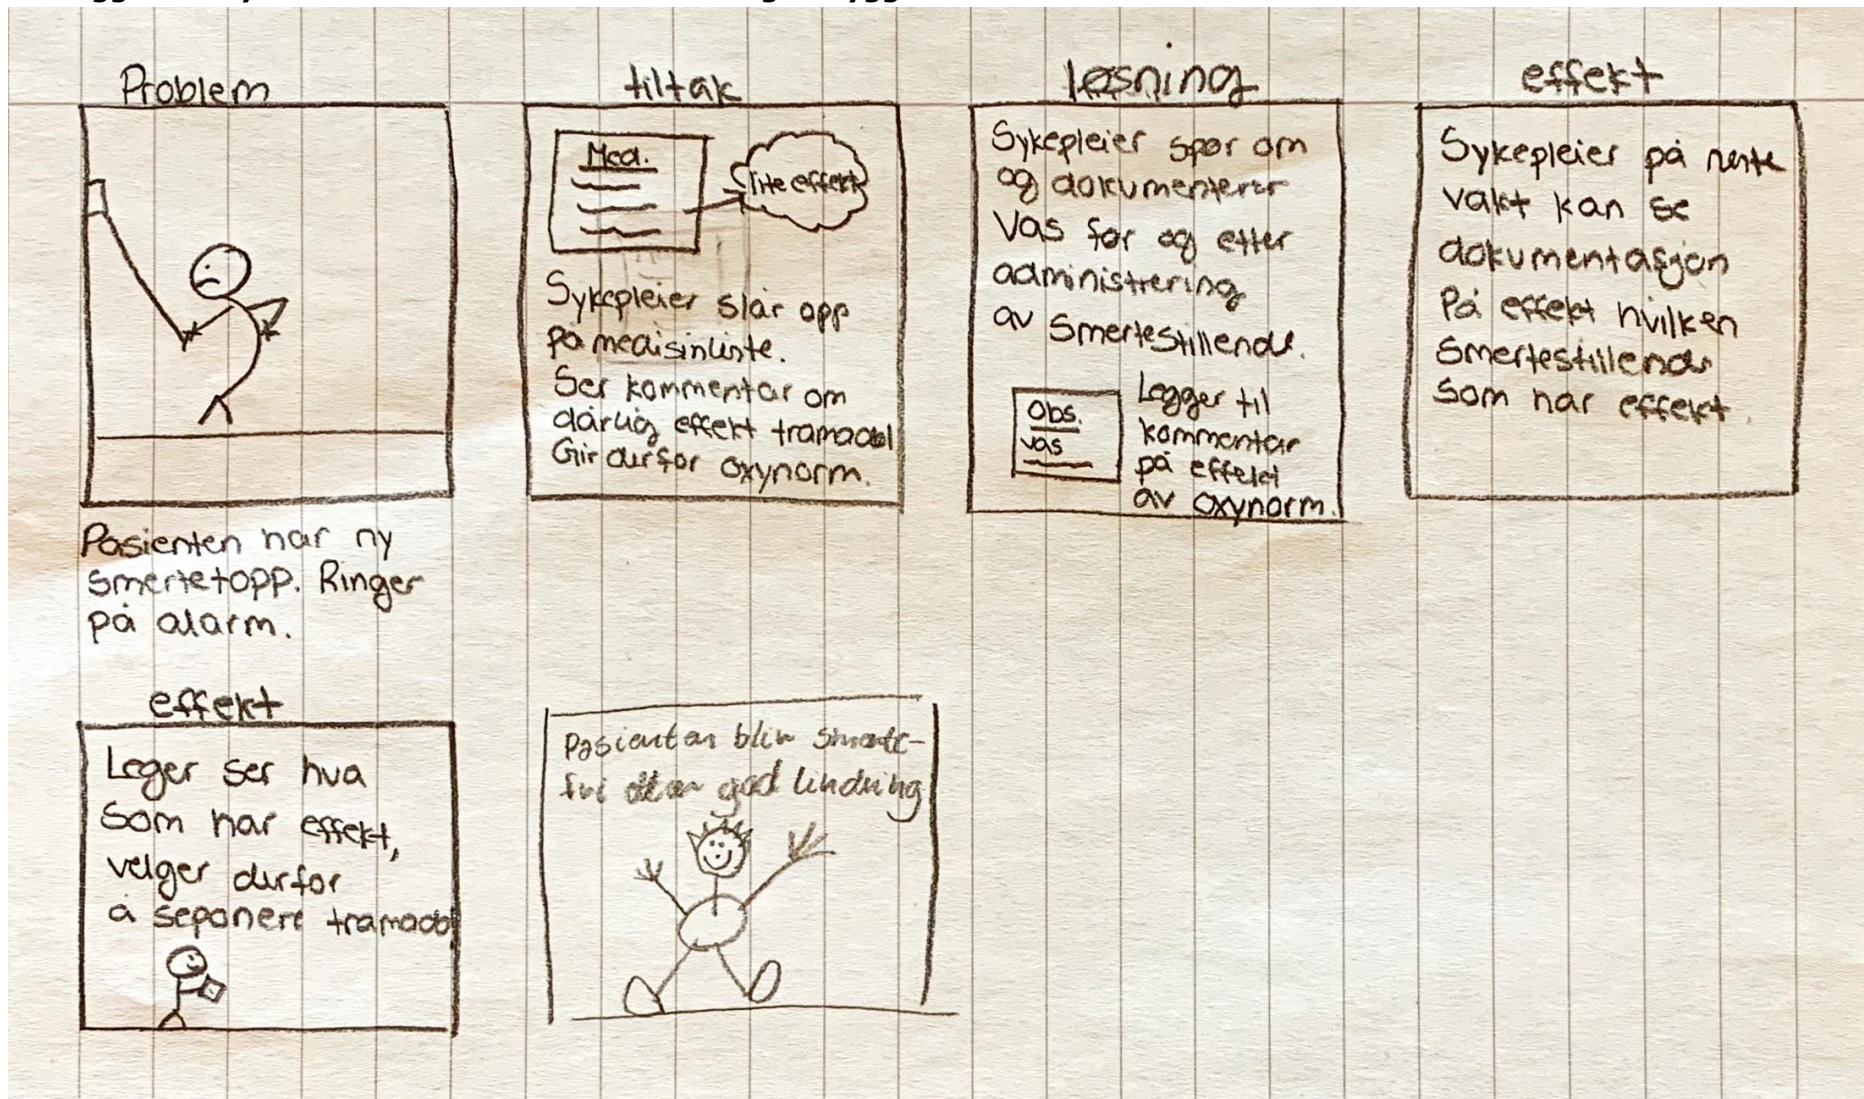 Problem
Pasienten har ny
smertetopp. Ringer
på alarm.
tiltak
Med.
lite effekt
Sykepleier slår opp
på medisinliste.
Ser kommentar om
dårlig effekt tramadol
Gir derfor oxynorm.
løsning
Sykepleier spør om
og dokumenterer
Vas før og etter
administrering
av smertestillende.
Obs.
vas
Legger til
kommentar
på effekt
av oxynorm.
effekt
Sykepleier på neste
vakt kan se
dokumentasjon
På effekt hvilken
smertestillende
som har effekt.
effekt
Leger ser hva
som har effekt,
velger derfor
å seponere tramadol
Pasienten blir smerte-
fri eller god lindring